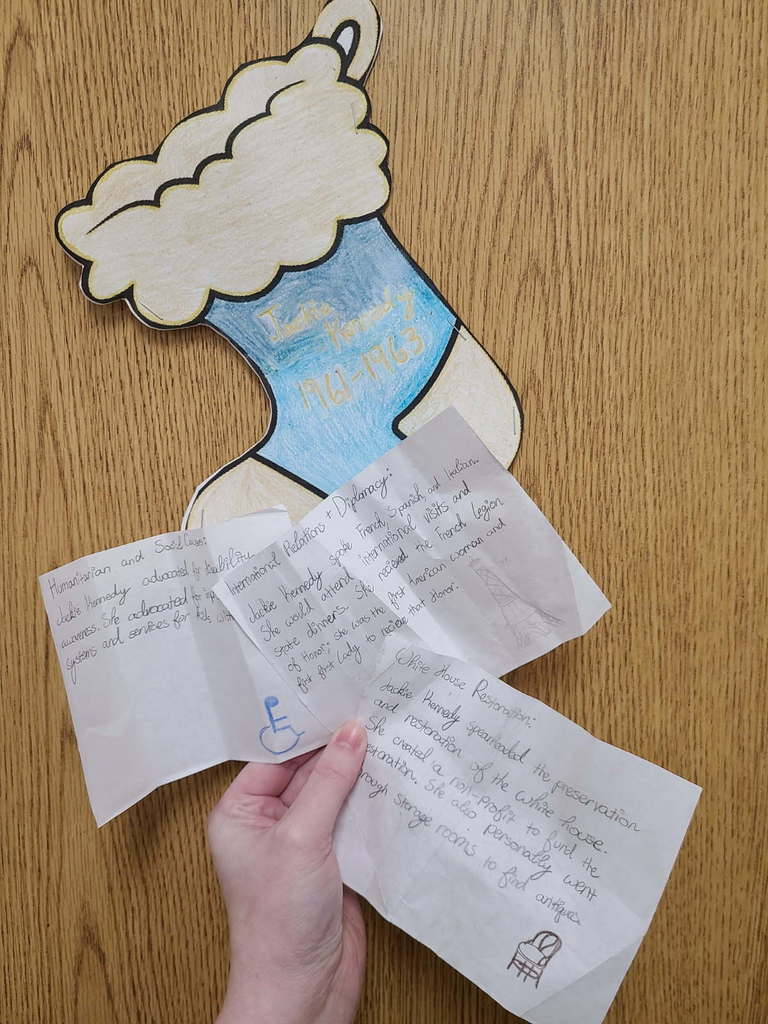 Jackie
Kennedy
1961-1963
Humanitarian and Social Causes:
Jackie Kennedy advocated for disability
awareness. She advocated for
systems and services for kids with
International Relations + Diplomacy:
Jackie Kennedy spoke French, Spanish, and Italian.
She would attend international visits and
state dinners. She recieved the French Legion
of Honor; she was the first American woman and
first first Lady to recieve that Honor.
White House Restoration:
Jackie Kennedy spearheaded the preservation
and restoration of the White house.
She created a non-profit to fund the
restoration. She also personally went
through storage rooms to find antiques.